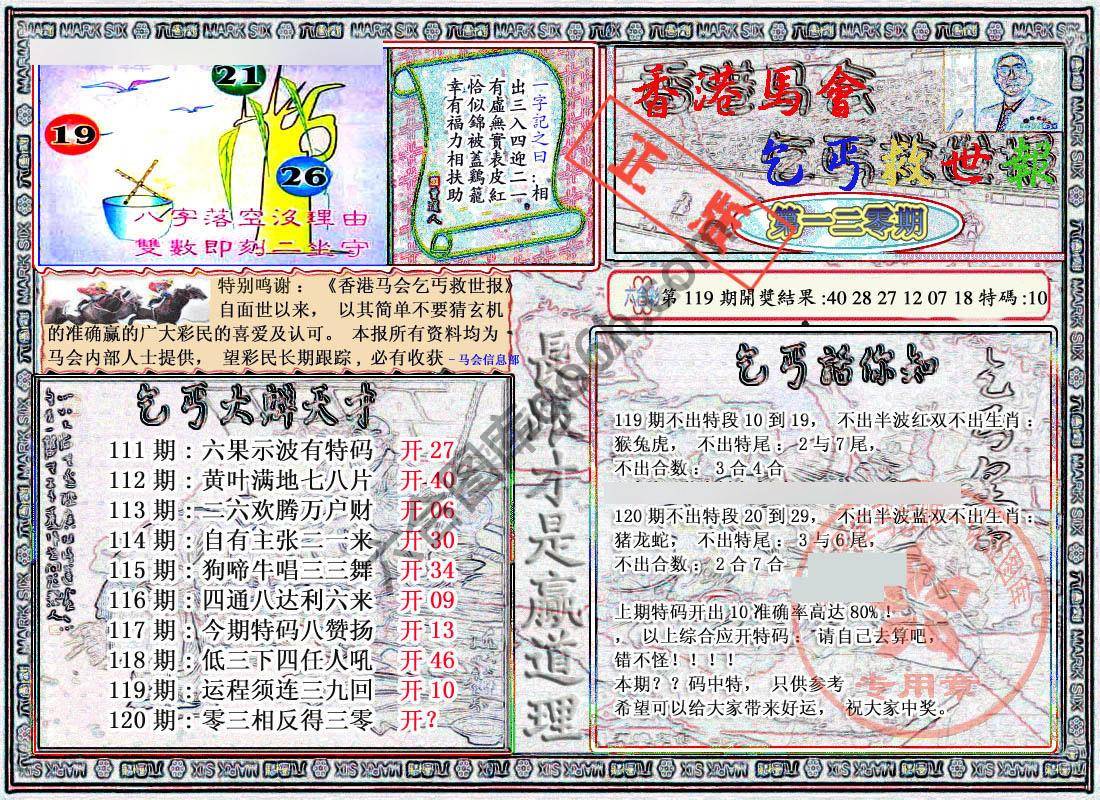 21
19
26
八字落空沒理由
雙數即刻二坐守
一字記之曰：相
出三入四迎二一
有虛無實表皮紅
恰似錦被蓋鷄籠
幸有福力相扶助
香港馬會
乞丐救世報
第一二零期
正版
特别鸣谢：《香港马会乞丐救世报》
自面世以来， 以其简单不要猜玄机
的准确赢的广大彩民的喜爱及认可。 本报所有资料均为
马会内部人士提供， 望彩民长期跟踪，必有收获－马会信息部
第119期開獎結果:40 28 27 12 07 18 特碼:10
乞丐大解天才
111期：六果示波有特码 开27
112期：黄叶满地七八片 开40
113期：二六欢腾万户财 开06
114期：自有主张三一来 开30
115期：狗啼牛唱三三舞 开34
116期：四通八达利六来 开09
117期：今期特码八赞扬 开13
118期：低三下四任人吼 开46
119期：运程须连三九回 开10
120期：零三相反得三零 开？
是
才是赢道理
乞丐話你知
119期不出特段10到19， 不出半波红双不出生肖：
猴兔虎， 不出特尾：2与7尾，
不出合数：3合4合
120期不出特段20到29， 不出半波蓝双不出生肖：
猪龙蛇， 不出特尾：3与6尾，
不出合数：2合7合
上期特码开出10准确率高达80%！
，以上综合应开特码： 请自己去算吧，
错不怪！！！！
本期？？码中特， 只供参考
希望可以给大家带来好运， 祝大家中奖。
专用章
MARK SIX